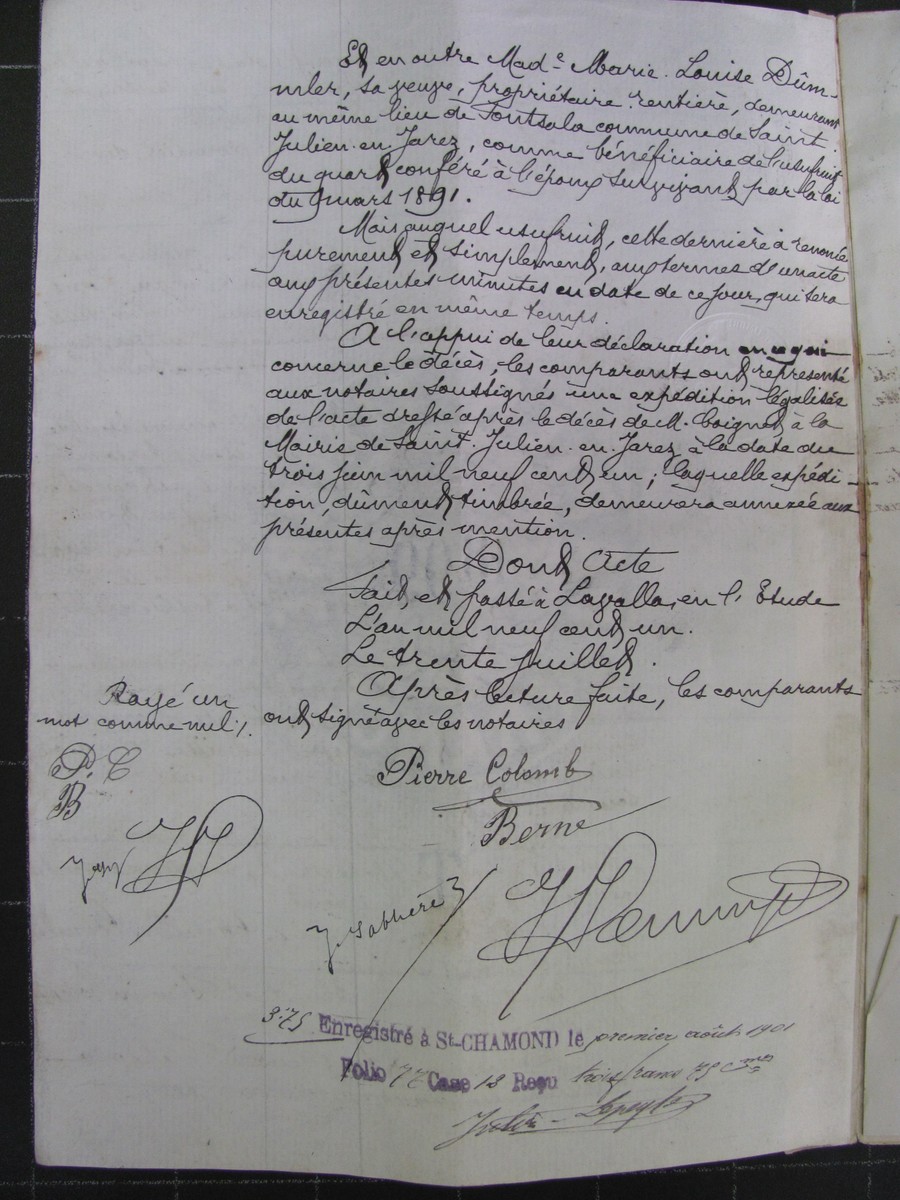 Et en outre Mad.e Marie-Louise Düm-
mler, sa veuve, propriétaire-rentière, demeurant
au même lieu de Fontsala commune de Saint-
Julien-en-Jarez, comme bénéficiaire de l'usufruit
du quart conféré à l'époux survivant par la loi
du 9 mars 1891.
Mais auquel usufruit, cette dernière à renoncé
purement et simplement, aux termes d'un acte
aux présentes minutes en date de ce jour, qui sera
enregistré en même temps.
A l'appui de leur déclaration en ce qui
concerne le décès, les comparants ont représenté
aux notaires soussignés une expédition légalisée
de l'acte dressé après le décès de M. Coignet à la
Mairie de Saint-Julien-en-Jarez à la date du
trois juin mil neuf cent un; laquelle expédi-
tion, dûment timbrée, demeurera annexée aux
présentes après mention.
Dont Acte
Fait et passé à Lavalla, en l'Etude
L'an mil neuf cent un.
Le trente juillet.
Après lecture faite, les comparants
ont signé avec les notaires
Rayé un
mot comme nul
P. C
B
Pierre Colomb
Berne
3.75 Enregistré à St-CHAMOND le premier août 1901
Folio 77 Case 13 Reçu trois francs 75 cmes